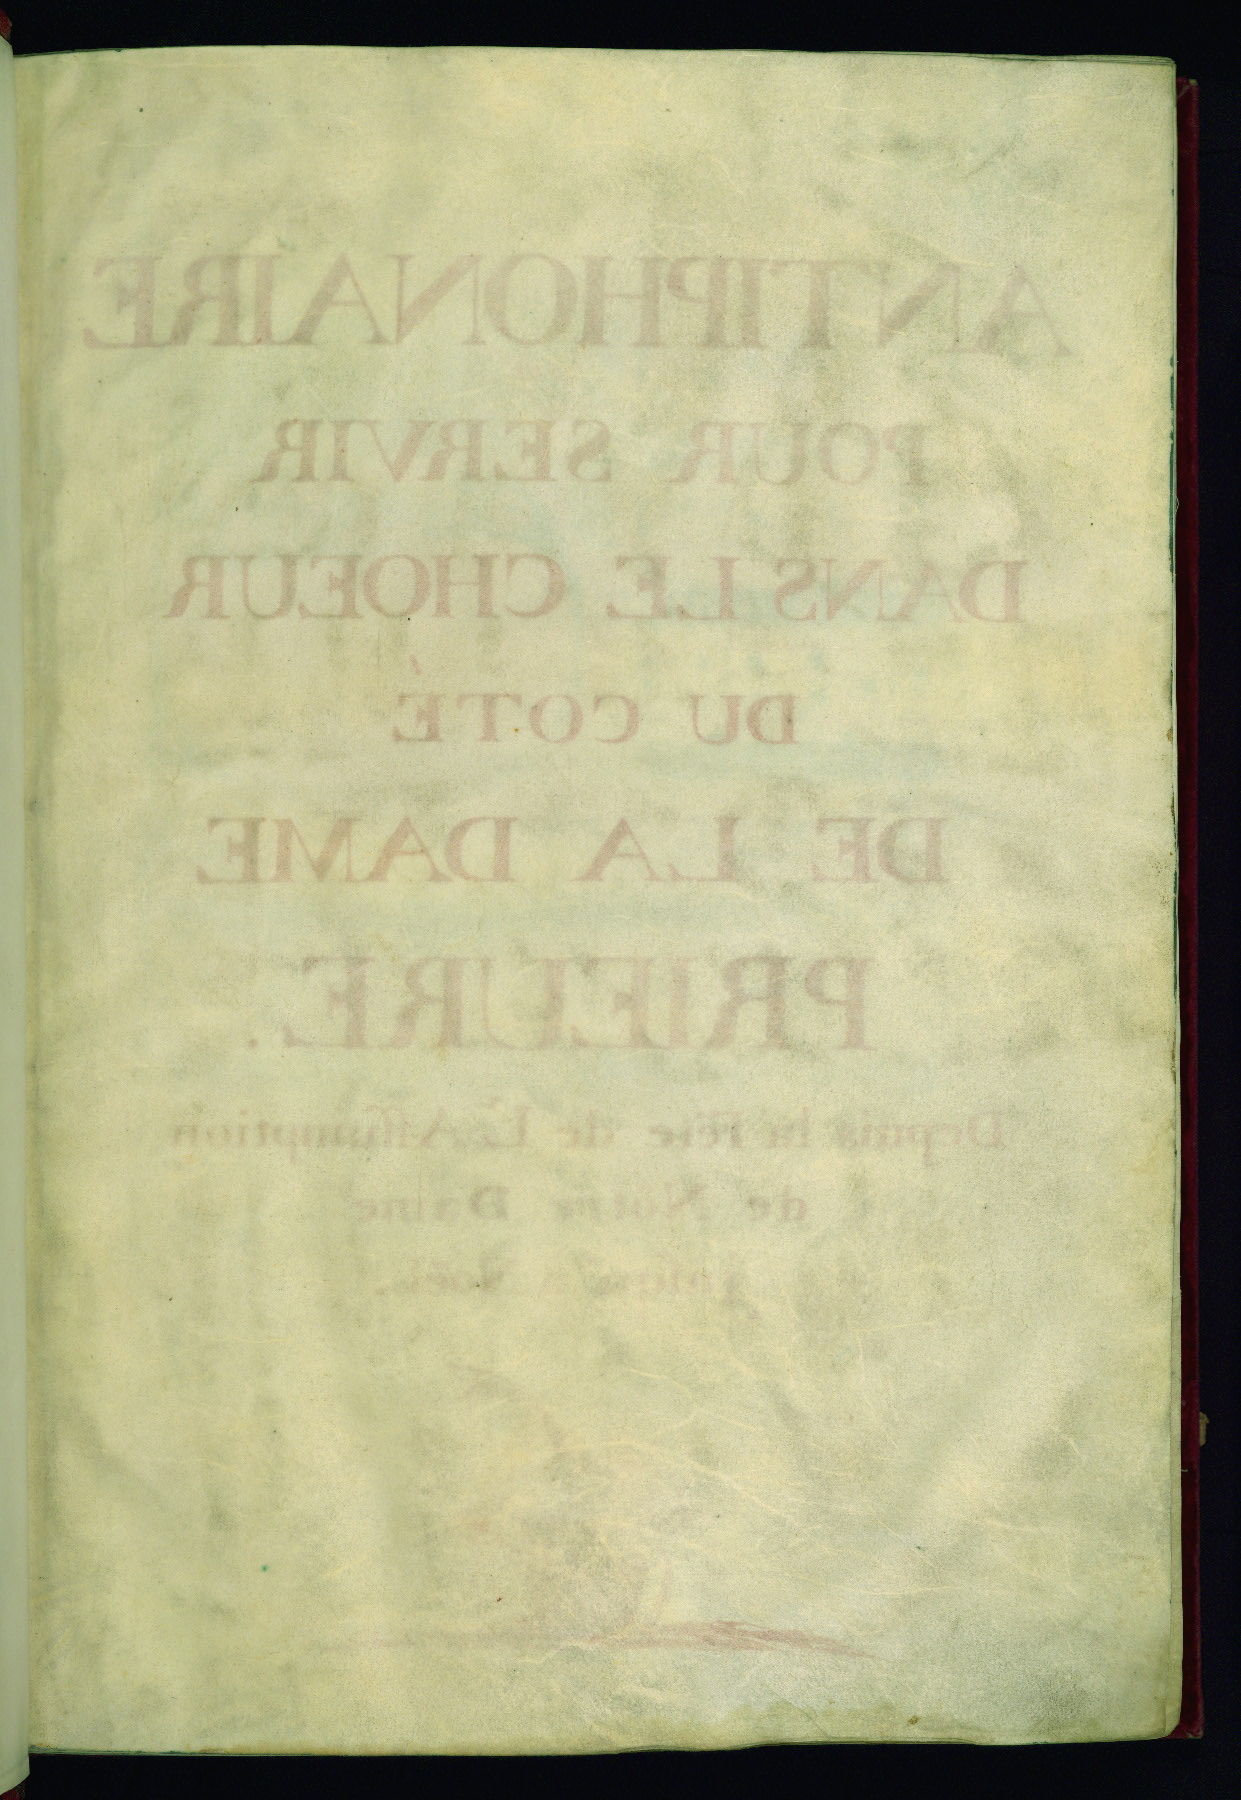 ANTIPHONAIRE
POUR SERVIR
DANS LE CHOEUR
DU COTÉ
DE LA DAME
PRIEURE.
Depuis la Fête de L'Assumption
de Notre Dame
Noel